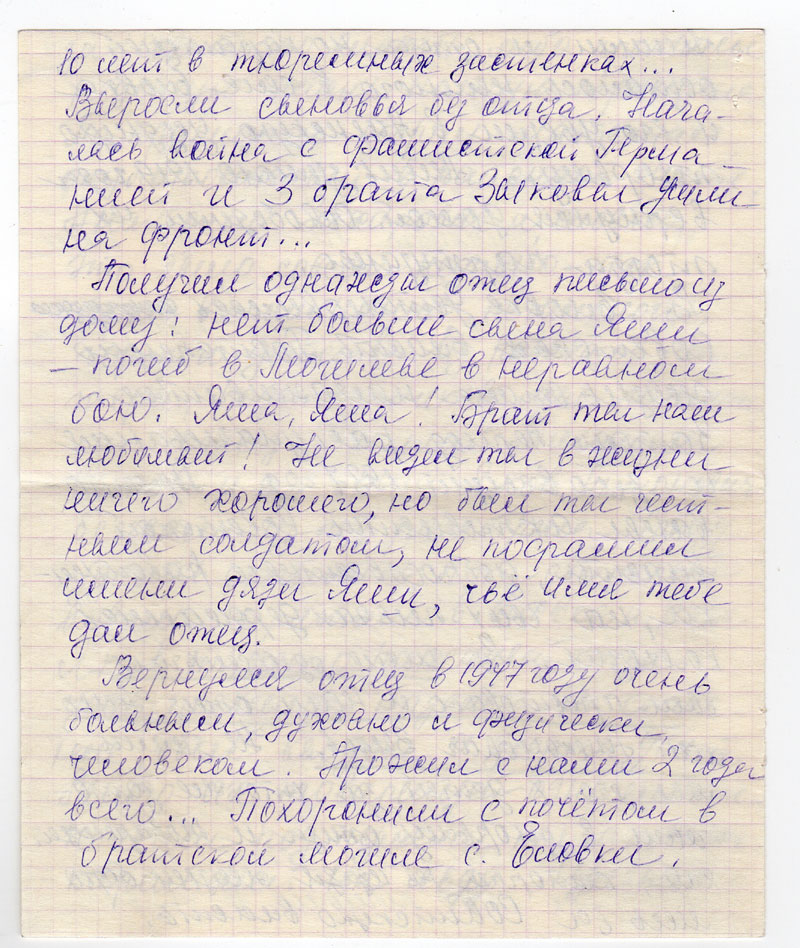 10 лет в тюремных застенках...
Выросли сыновья без отца. Нача-
лась война с фашистской Герма-
нией и 3 брата Зыковы ушли
на фронт...
Получил однажды отец письмо из
дому: нет больше сына Яши
– погиб в Могилеве в неравном
бою. Яша, Яша! Брат ты наш
любимый! Не видел ты в жизни
ничего хорошего, но был ты чест-
ным солдатом, не посрамил
имени дяди Яши, чьё имя тебе
дал отец.
Вернулся отец в 1947 году очень
больным, духовно и физически,
человеком. Прожил с нами 2 года
всего... Похоронили с почётом в
братской могиле с. Еловки.